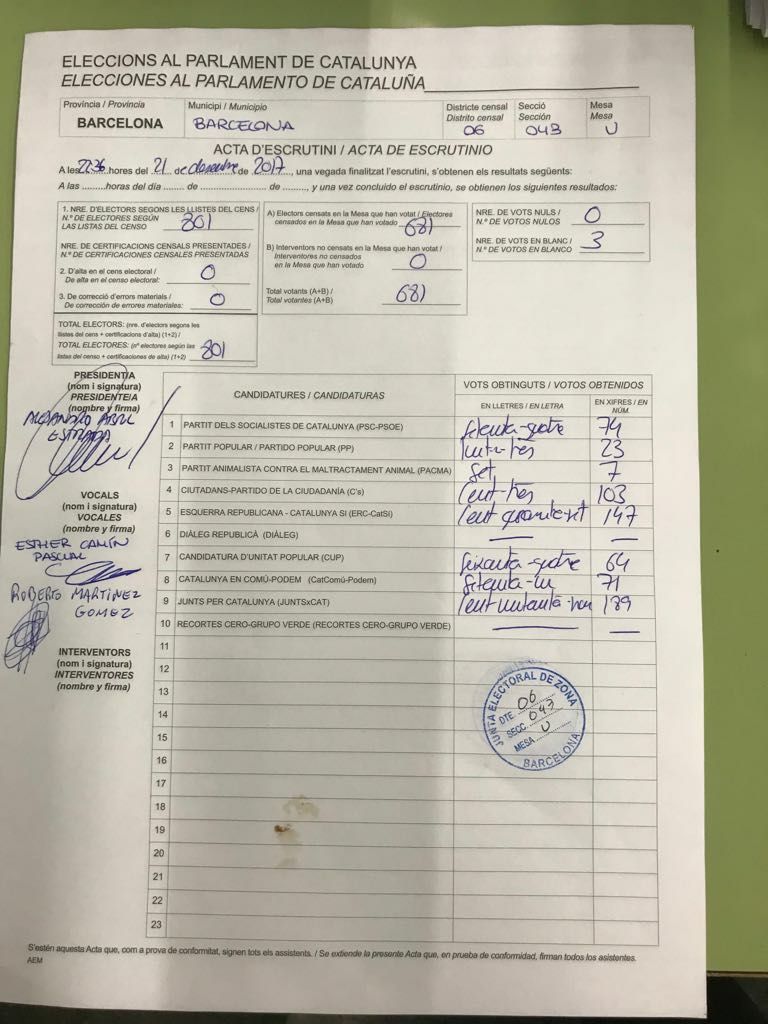 ELECCIONS AL PARLAMENT DE CATALUNYA
ELECCIONES AL PARLAMENTO DE CATALUÑA
Província / Provincia
BARCELONA
Municipi / Municipio
BARCELONA
Districte censal
Distrito censal
06
Secció
Sección
043
Mesa
Mesa
U
ACTA D'ESCRUTINI / ACTA DE ESCRUTINIO
A les 22:36 hores del 21 de desembre de 2017, una vegada finalitzat l'escrutini, s'obtenen els resultats següents:
A las .........horas del día ....... de ........................... de ........, y una vez concluido el escrutinio, se obtienen los siguientes resultados:
1. NRE. D'ELECTORS SEGONS LES LLISTES DEL CENS /
N.º DE ELECTORES SEGÚN
LAS LISTAS DEL CENSO 801
NRE. DE CERTIFICACIONS CENSALS PRESENTADES /
N.º DE CERTIFICACIONES CENSALES PRESENTADAS
2. D'alta en el cens electoral /
De alta en el censo electoral 0
3. De correcció d'errors materials /
De corrección de errores materiales: 0
TOTAL ELECTORS: (nre. d'electors segons les
llistes del cens + certificacions d'alta) (1+2) /
TOTAL ELECTORES: (nº electores según las
listas del censo + certificaciones de alta) (1+2) 801
A) Electors censats en la Mesa que han votat / Electores
censados en la Mesa que han votado 681
B) Interventors no censats en la Mesa que han votat /
Interventores no censados
en la Mesa que han votado 0
Total votants (A+B) /
Total votantes (A+B) 681
NRE. DE VOTS NULS /
N.º DE VOTOS NULOS 0
NRE. DE VOTS EN BLANC /
N.º DE VOTOS EN BLANCO 3
PRESIDENT/A
(nom i signatura)
PRESIDENTE/A
(nombre y firma)
ALEJANDRO ABRIL
ESTRADA
VOCALS
(nom i signatura)
VOCALES
(nombre y firma)
ESTHER CAMÍN
PASCUAL
ROBERTO MARTINEZ
GOMEZ
INTERVENTORS
(nom i signatura)
INTERVENTORES
(nombre y firma)
CANDIDATURES / CANDIDATURAS
VOTS OBTINGUTS / VOTOS OBTENIDOS
EN LLETRES / EN LETRA
EN XIFRES / EN NÚM.
1 PARTIT DELS SOCIALISTES DE CATALUNYA (PSC-PSOE) Setenta-quatre 74
2 PARTIT POPULAR / PARTIDO POPULAR (PP) Vint-i-tres 23
3 PARTIT ANIMALISTA CONTRA EL MALTRACTAMENT ANIMAL (PACMA) Set 7
4 CIUTADANS-PARTIDO DE LA CIUDADANÍA (C's) Cent-tres 103
5 ESQUERRA REPUBLICANA - CATALUNYA SI (ERC-CatSí) Cent quaranta-set 147
6 DIÀLEG REPUBLICÀ (DIÀLEG) — —
7 CANDIDATURA D'UNITAT POPULAR (CUP) Seixanta-quatre 64
8 CATALUNYA EN COMÚ-PODEM (CatComú-Podem) Setenta-un 71
9 JUNTS PER CATALUNYA (JUNTSxCAT) Cent vuitanta-nou 189
10 RECORTES CERO-GRUPO VERDE (RECORTES CERO-GRUPO VERDE) — —
11
12
13
14
15
16
17
18
19
20
21
22
23
JUNTA ELECTORAL DE ZONA
DTE. 06
SECC. 043
MESA U
BARCELONA
S'estén aquesta Acta que, com a prova de conformitat, signen tots els assistents. / Se extiende la presente Acta que, en prueba de conformidad, firman todos los asistentes.
AEM